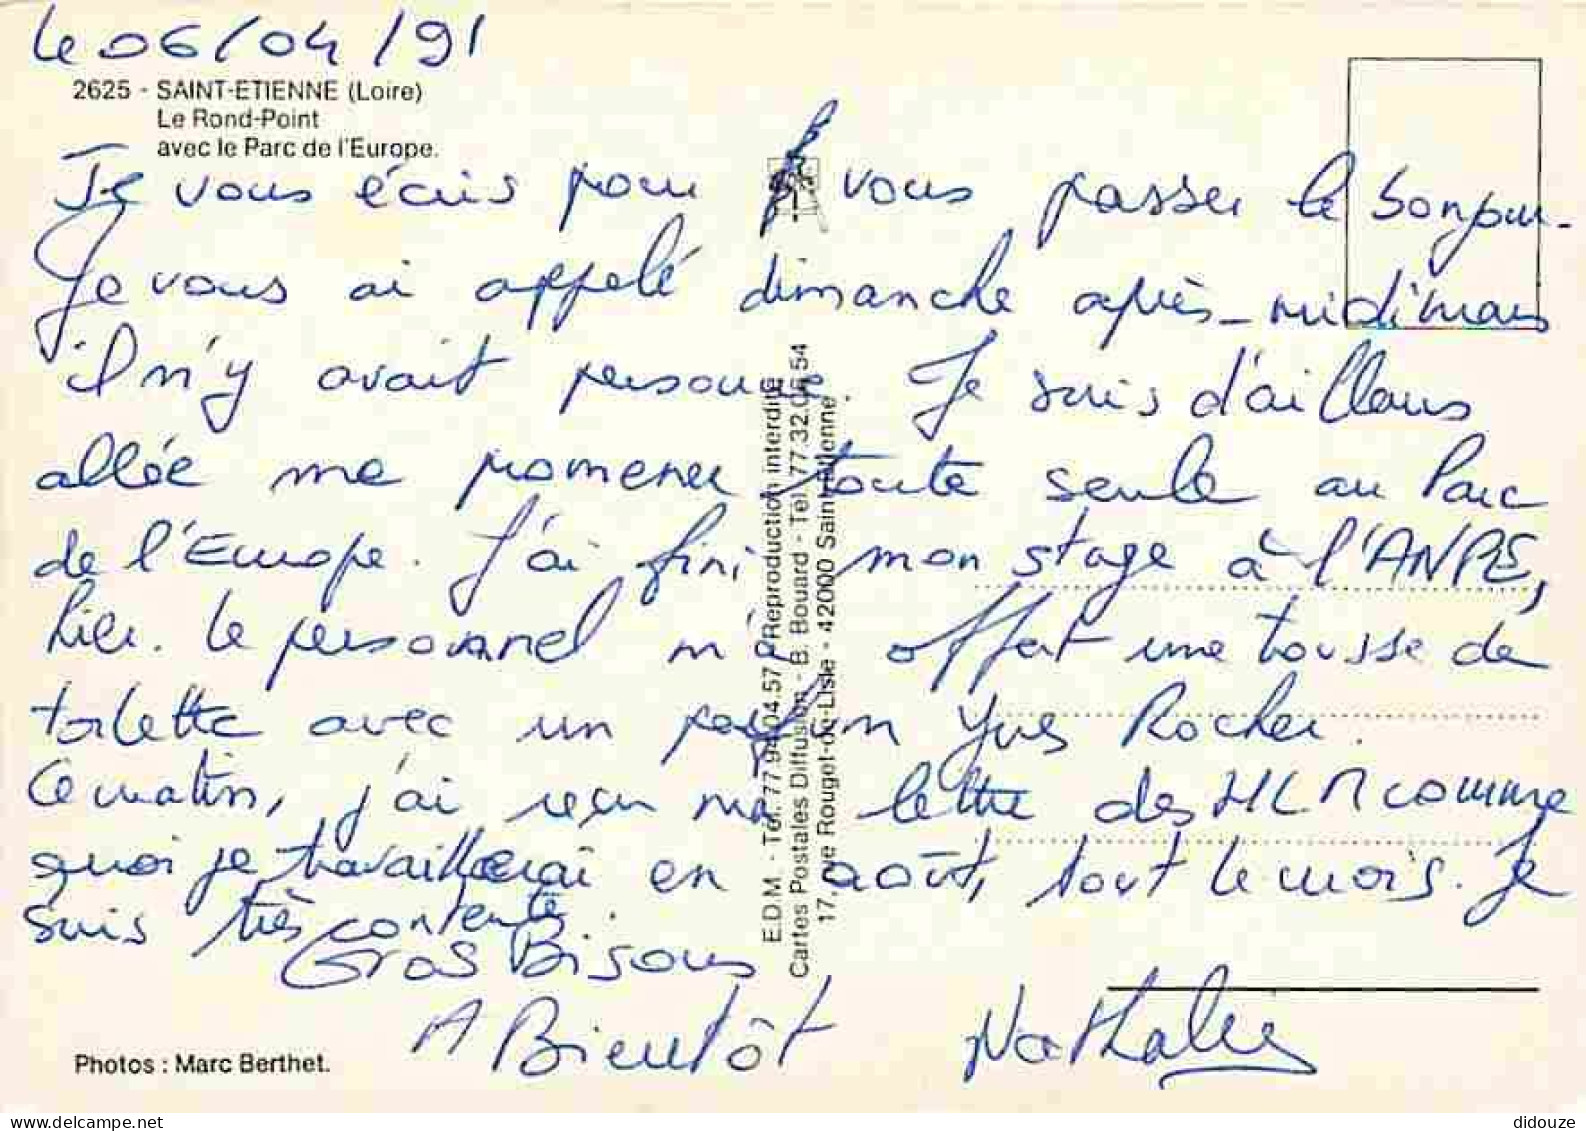 Le 06/04/91
2625 - SAINT-ETIENNE (Loire)
Le Rond-Point
avec le Parc de l'Europe.
Je vous écris pour vous passer le bonjour.
Je vous ai appelé dimanche après-midi mais
il n'y avait personne. Je suis d'ailleurs
allée me promener toute seule au Parc
de l'Europe. J'ai fini mon stage à l'ANPE,
hier. Le personnel m'a offert une trousse de
toilette avec un parfum Yves Rocher.
Ce matin, j'ai reçu ma lettre des HLM comme
quoi je travaillerai en août, tout le mois. Je
suis très contente.
Gros Bisous
A Bientôt Nathalie
Photos : Marc Berthet.
E.D.M. - Tél. 77.94.04.57 Reproduction interdite
Cartes Postales Diffusion - B. Bouard - Tél. 77.32.05.54
17, rue Rouget-de-Lisle - 42000 Saint-Etienne
didouze